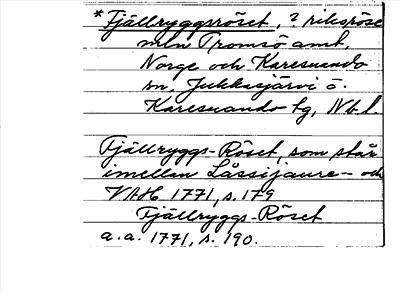 *Fjällryggsröset, ? riksröse
mln Tromsö amt,
Norge och Karesuando
sn, Jukkasjärvi o.
Karesuando tg, Nb.l.
Fjällryggs-Röset, som står
imellan Låssijaure- och
VAH 1771, s. 179
Fjällryggs-Röset
a.a. 1771, s. 190.